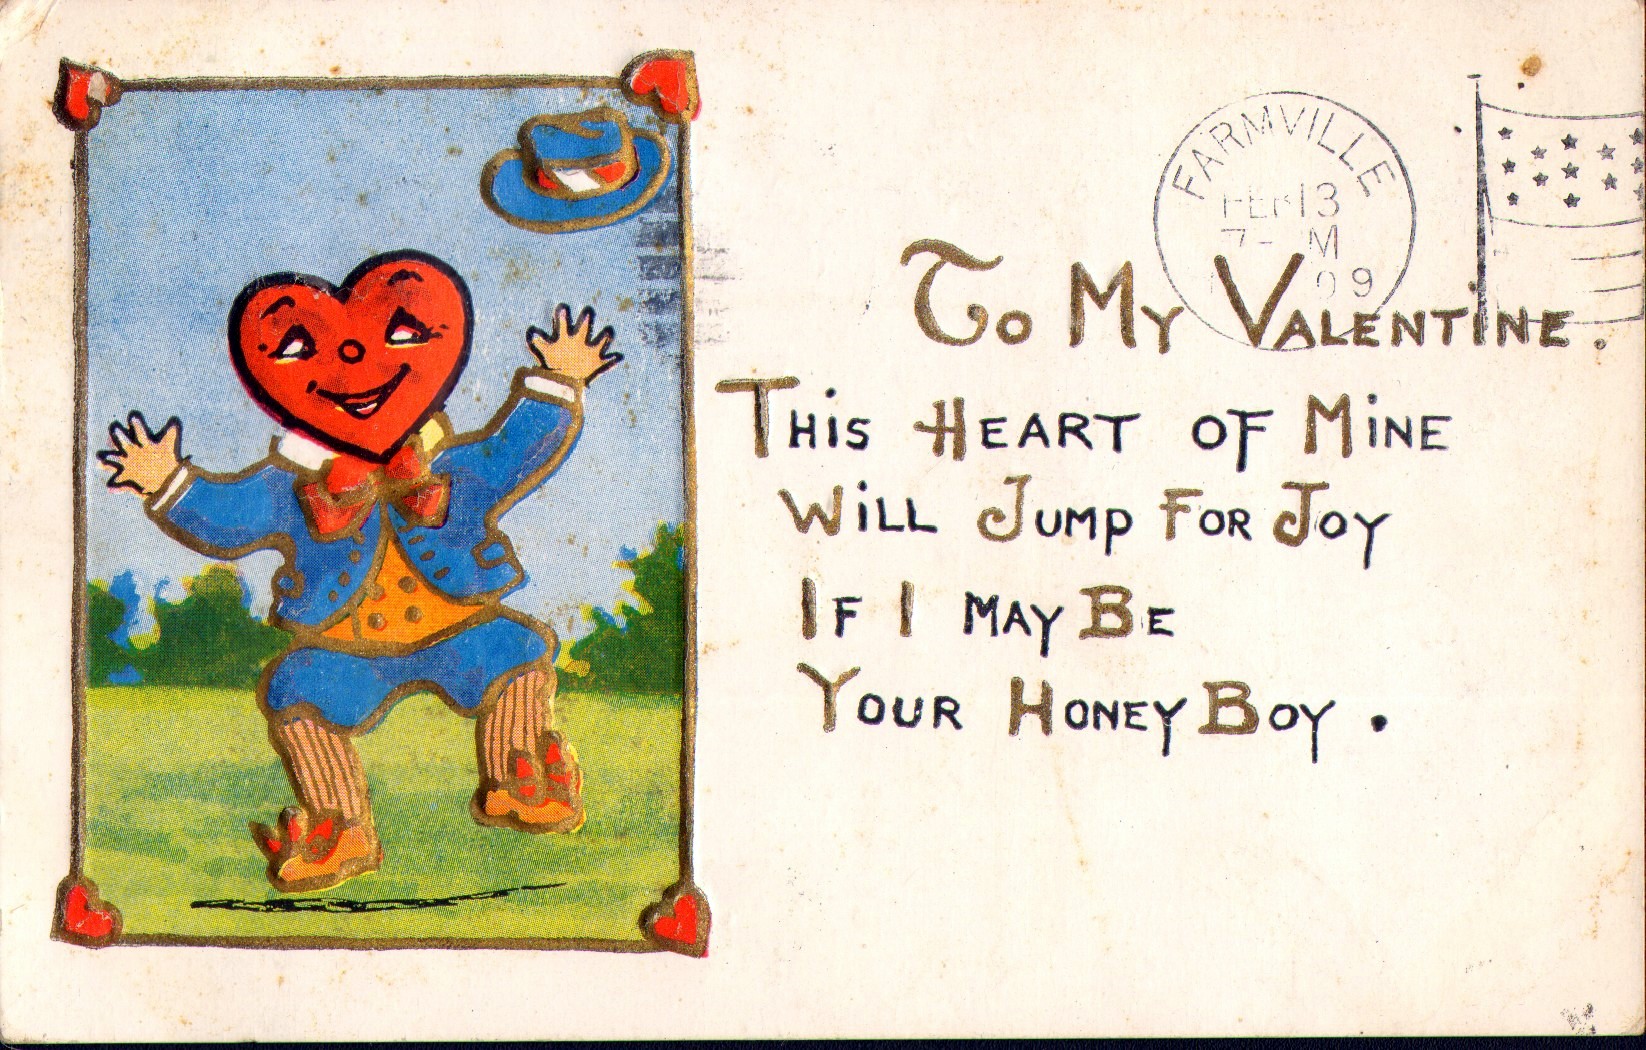 FARMVILLE
FEB 13
7- M
09
To My Valentine.
This Heart of Mine
Will Jump For Joy
If I may Be
Your Honey Boy.